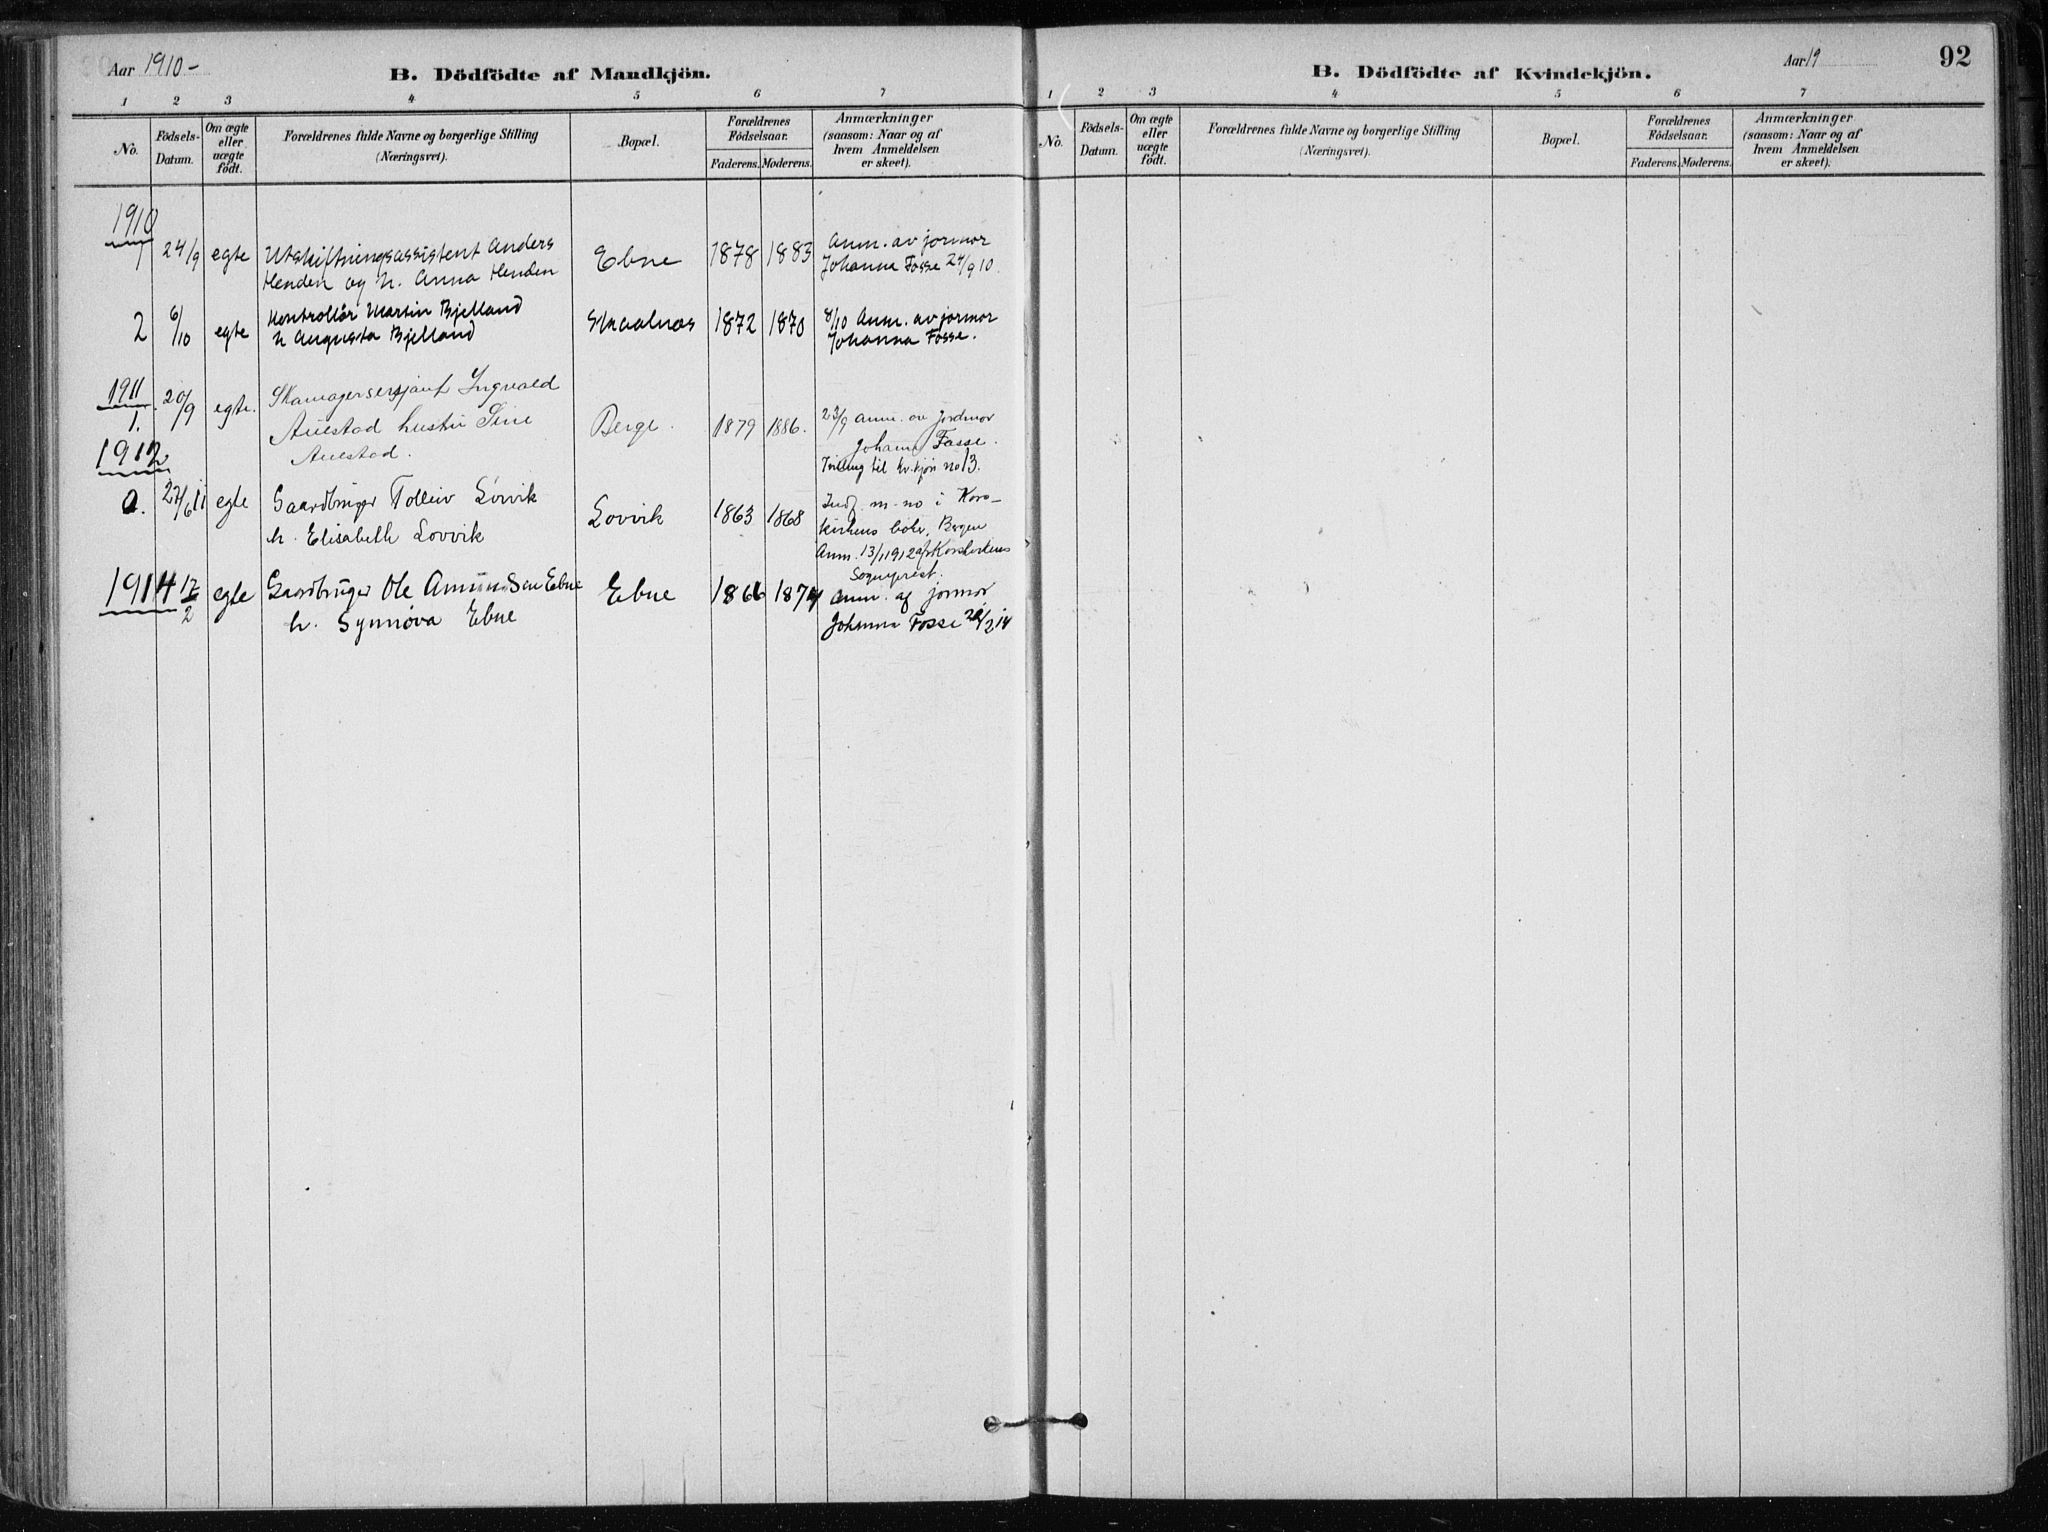 Aar 1910-
B. Dödfödte af Mandkjön.
1 2 3 4 5 6 7
No.
Födsels-Datum.
Om ægte eller uægte födt.
Forældrenes fulde Navne og borgerlige Stilling (Næringsvei).
Bopæl.
Forældrenes Födselsaar.
Faderens. Moderens.
Anmærkninger (saasom: Naar og af hvem Anmeldelsen er skeet).
1910
1 24/9 egte Utskiftningsassistent Anders Ebne 1878 1883 Anm. av jormor
Henden og h. Anna Henden Johanna Fosse 24/9 10.
2 6/10 egte Kontrollör Martin Bjelland Skaalnes 1872 1870 8/10 Anm. av jormor
h Augusta Bjelland Johanna Fosse.
1911
1. 20/9 egte. Ingvald Berge. 1879 1886. 23/9 anm. av Jordmor
Auestad hustru Sine Johanna Fosse.
Auestad. Tvilling til kv.kjøn no 13.
1912
0. 27/6 11 egte Gaardbruger Tolleiv Lovvik Lovvik 1863 1868 Indf. m. no i Kors-
h. Elisabeth Lovvik kirkens bøker, Bergen
Anm. 13/1 1912 af Korskirkens
Sogneprest.
1914 17/2 egte Gaardbruger Ole Amundsen Ebne Ebne 1866 1874 Anm. af jormor
h. Synnøva Ebne Johanna Fosse 2 14
Aar 19
92
B. Dödfödte af Kvindekjön.
1 2 3 4 5 6 7
No.
Födsels-Datum.
Om ægte eller uægte födt.
Forældrenes fulde Navne og borgerlige Stilling (Næringsvei).
Bopæl.
Forældrenes Födselsaar.
Faderens. Moderens.
Anmærkninger (saasom: Naar og af hvem Anmeldelsen er skeet).